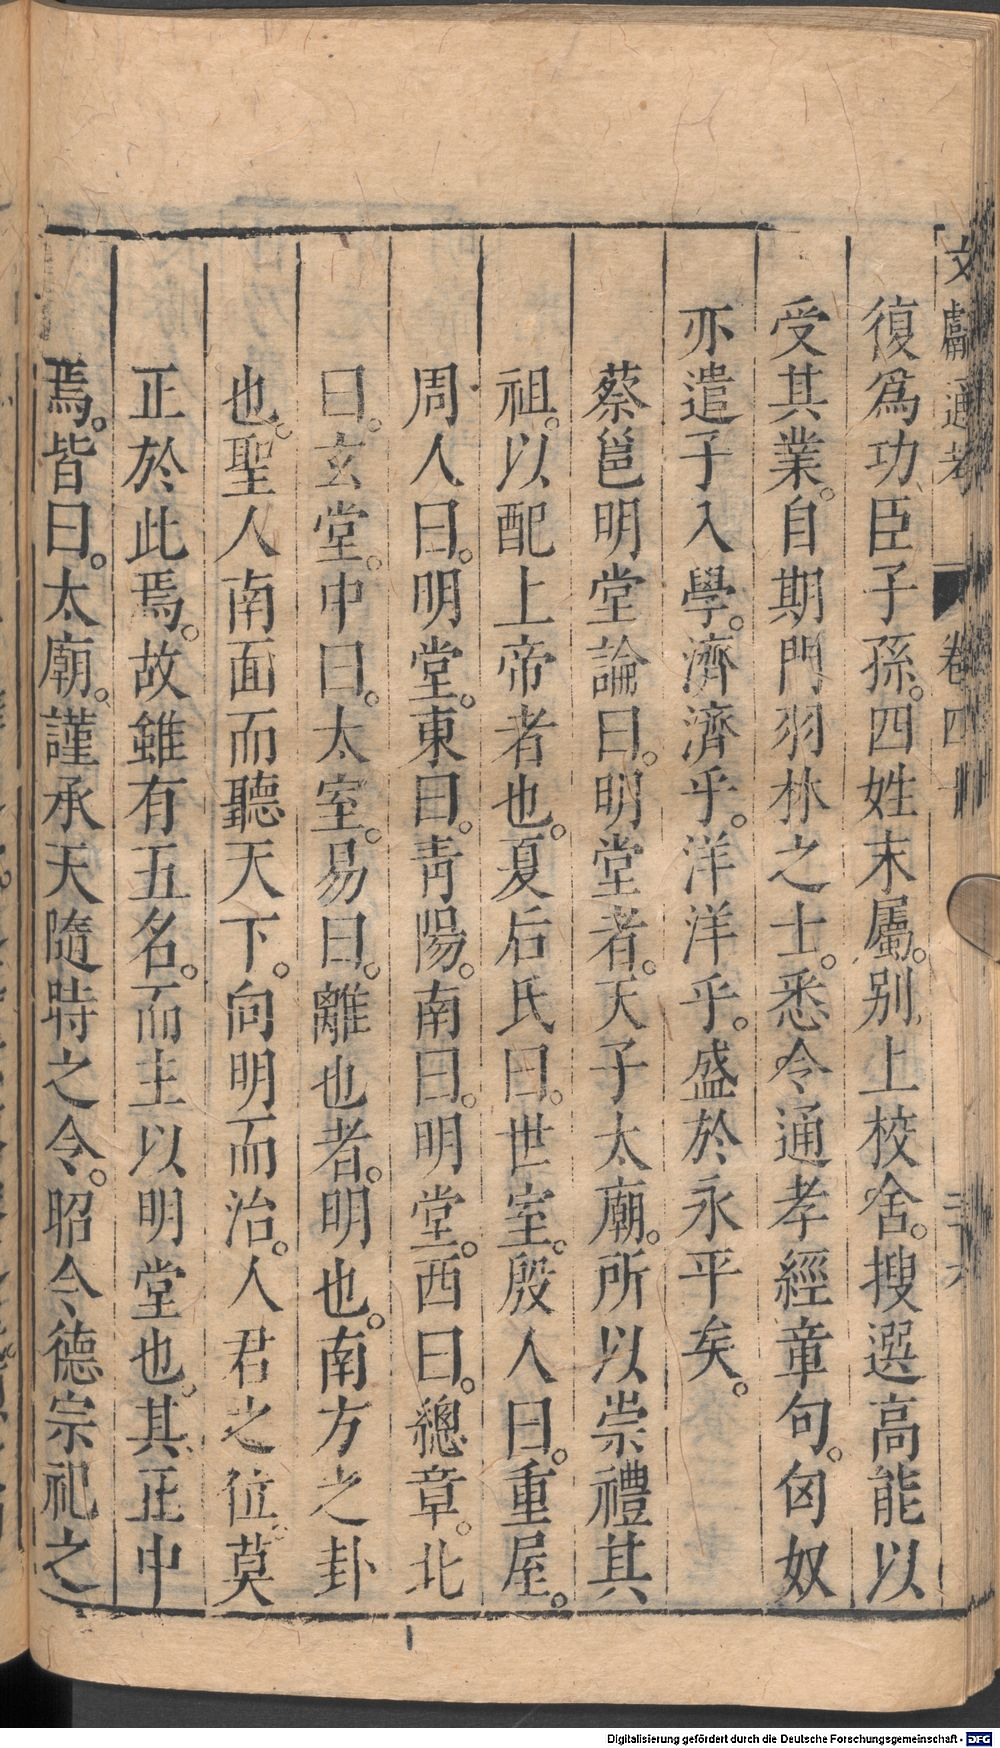 文獻通考 卷四十 二十六
復爲功臣子孫。四姓末屬。別上校舍。搜選高能以
受其業。自期門羽林之士。悉令通孝經章句。匈奴
亦遣子入學。濟濟乎。洋洋乎。盛於永平矣。
蔡邕明堂論曰。明堂者。天子太廟。所以崇禮其
祖。以配上帝者也。夏后氏曰。世室。殷人曰。重屋。
周人曰。明堂。東曰。靑陽。南曰。明堂。西曰。總章。北
曰。玄堂。中曰。太室。易曰。離也者。明也。南方之卦
也。聖人南面而聽天下。向明而治。人君之位。莫
正於此焉。故雖有五名。而主以明堂也。其正中
焉。皆曰。太廟。謹承天隨時之令。昭令德宗祀之
Digitalisierung gefördert durch die Deutsche Forschungsgemeinschaft - DFG